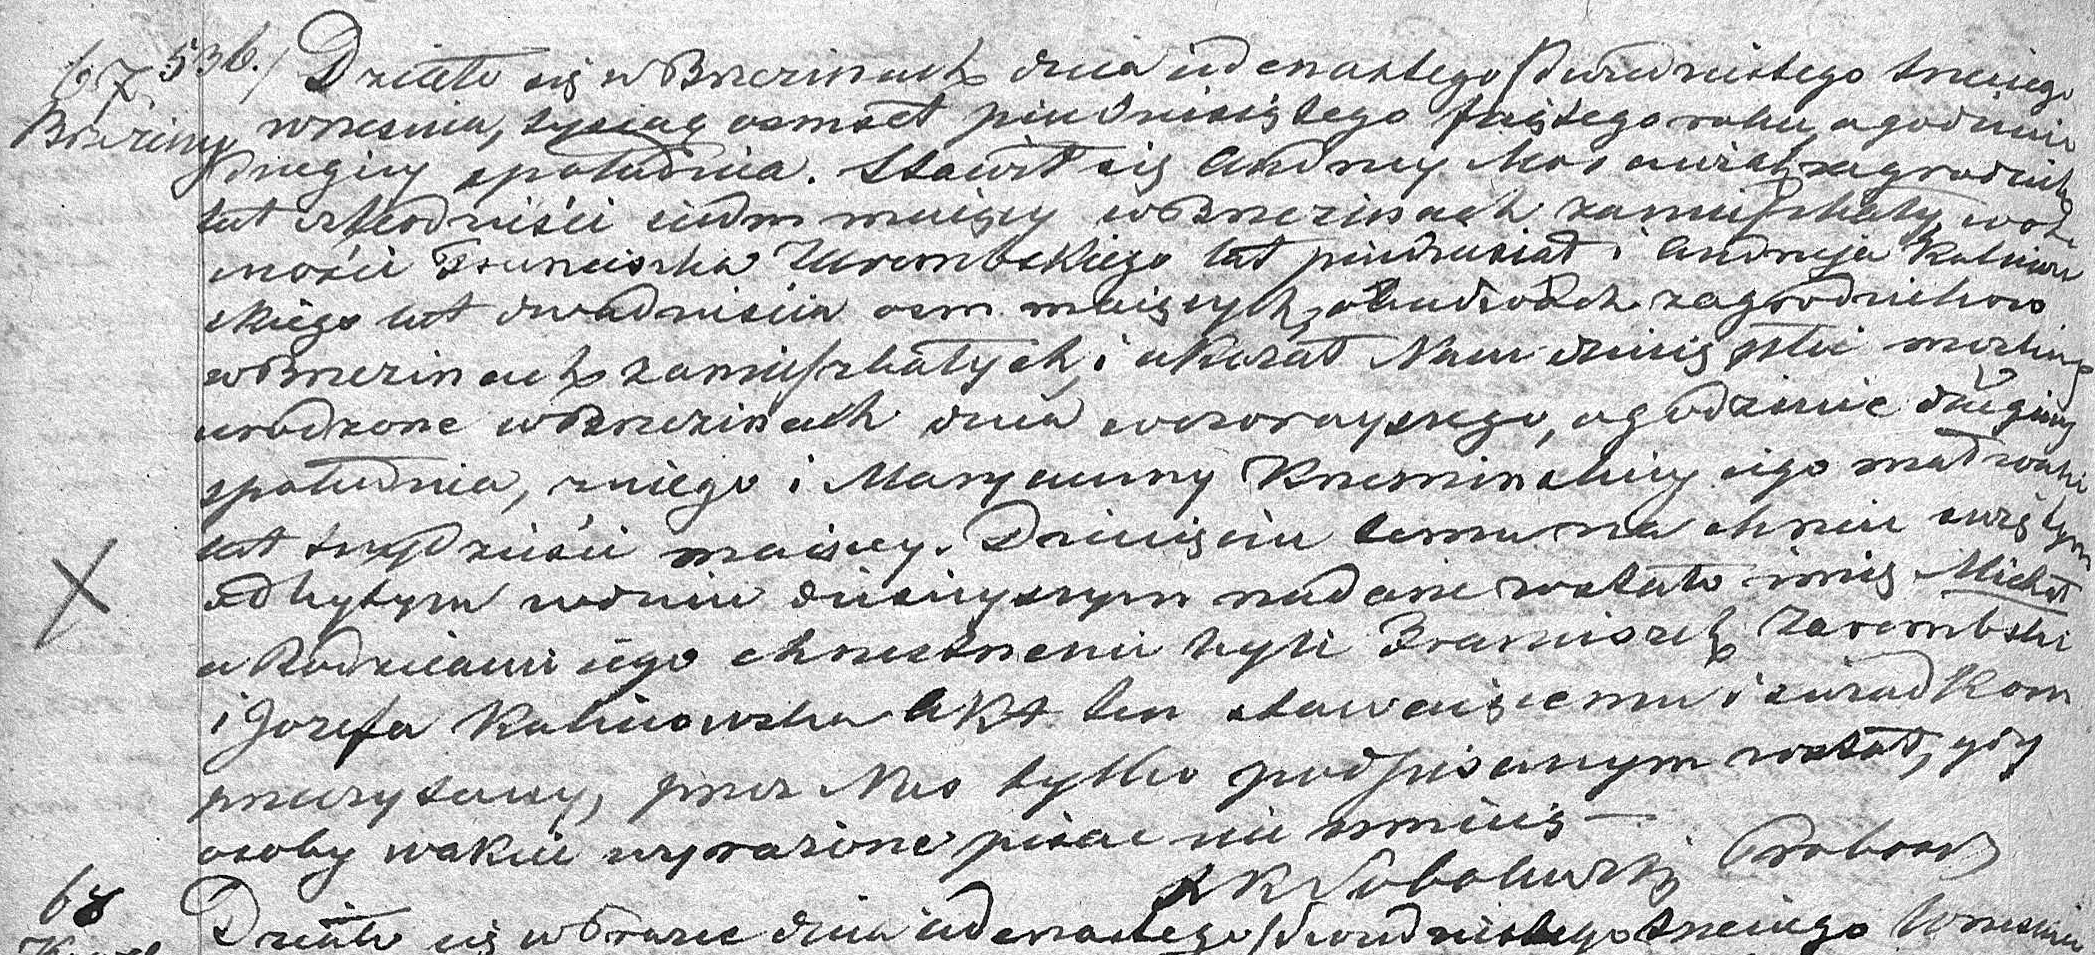 67 536./ Działo się w Brzezinach dnia iedenastego /dwudziestego trzeciego
Brzeziny września, tysiąc osmset piędziesiątego roku, o godzinie
drugiey społudnia. Stawił się Andrzey zagrodnik
lat czterdzieści siedm maiący w Brzezinach zamieszkały, w ob-
ności Franciszka Zarembskiego lat piędziesiąt i Andrzeja Kalinow-
skiego lat dwadzieścia osm maiących, obudwóch zagrodników
w Brzezinach zamieszkałych, i okazał Nam dziecię płci męzkiey
urodzone w Brzezinach dnia wczorayszego, o godzinie drugiey
społudnia, z niego i Maryanny iego małżonki
lat trzydzieści maiącey. Dziecięciu temu na chrzcie świętym
odbytym w dniu dzisieyszym nadane zostało imię Michał
a Rodzicami iego chrzestnemi byli Franciszek Zarembski
i Jozefa Kalinowska Akt ten stawaiącemu i świadkom
przeczytany, przez Nas tylko podpisanym został, gdy
osoby w akcie wyrażone pisać nie umieią —
Proboszcz
68 Działo się w dnia iedenastego /dwudziestego trzeciego Września